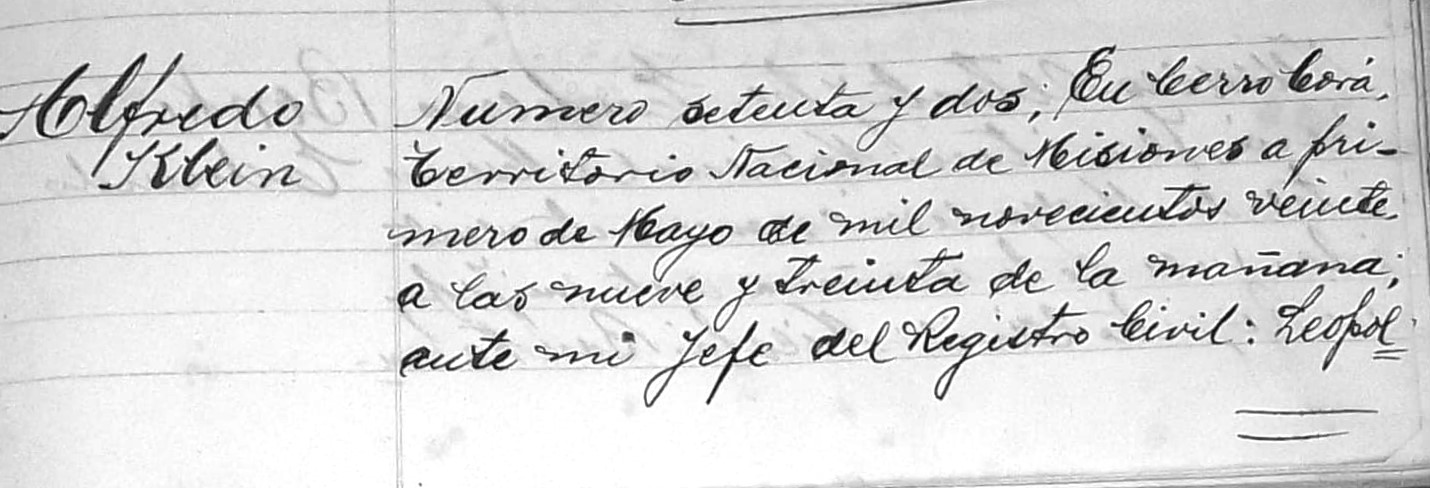 Alfredo
Klein
Numero setenta y dos; En Cerro Corá,
Territorio Nacional de Misiones a pri-
mero de Mayo de mil novecientos veinte
a las nueve y treinta de la mañana;
ante mi Jefe del Registro Civil: Leopol